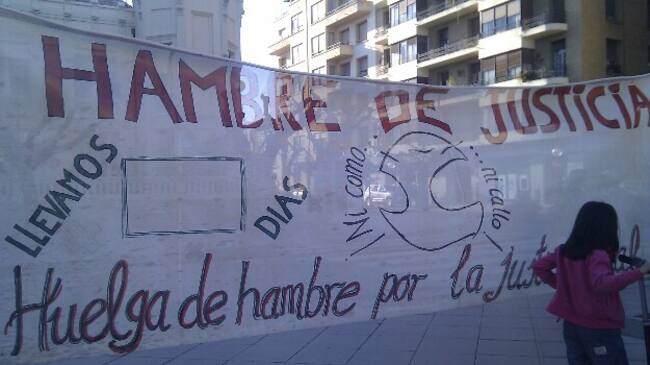 HAMBRE DE JUSTICIA
LLEVAMOS
DIAS
Ni como...
...ni callo
Huelga de hambre por la justicia